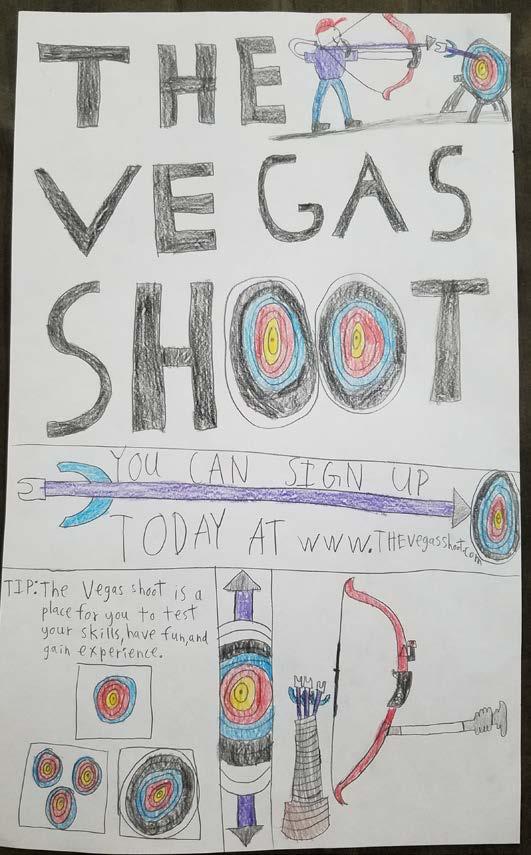 THE
VEGAS
SHOOT
YOU CAN SIGN UP
TODAY AT www.THEvegasshoot.com
TIP: The Vegas shoot is a
place for you to test
your skills, have fun, and
gain experience.